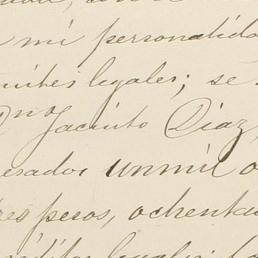 mi personalida
mites legales; se
Dn Jacinto Diaz,
esados un mil o
tres pesos, ochenta